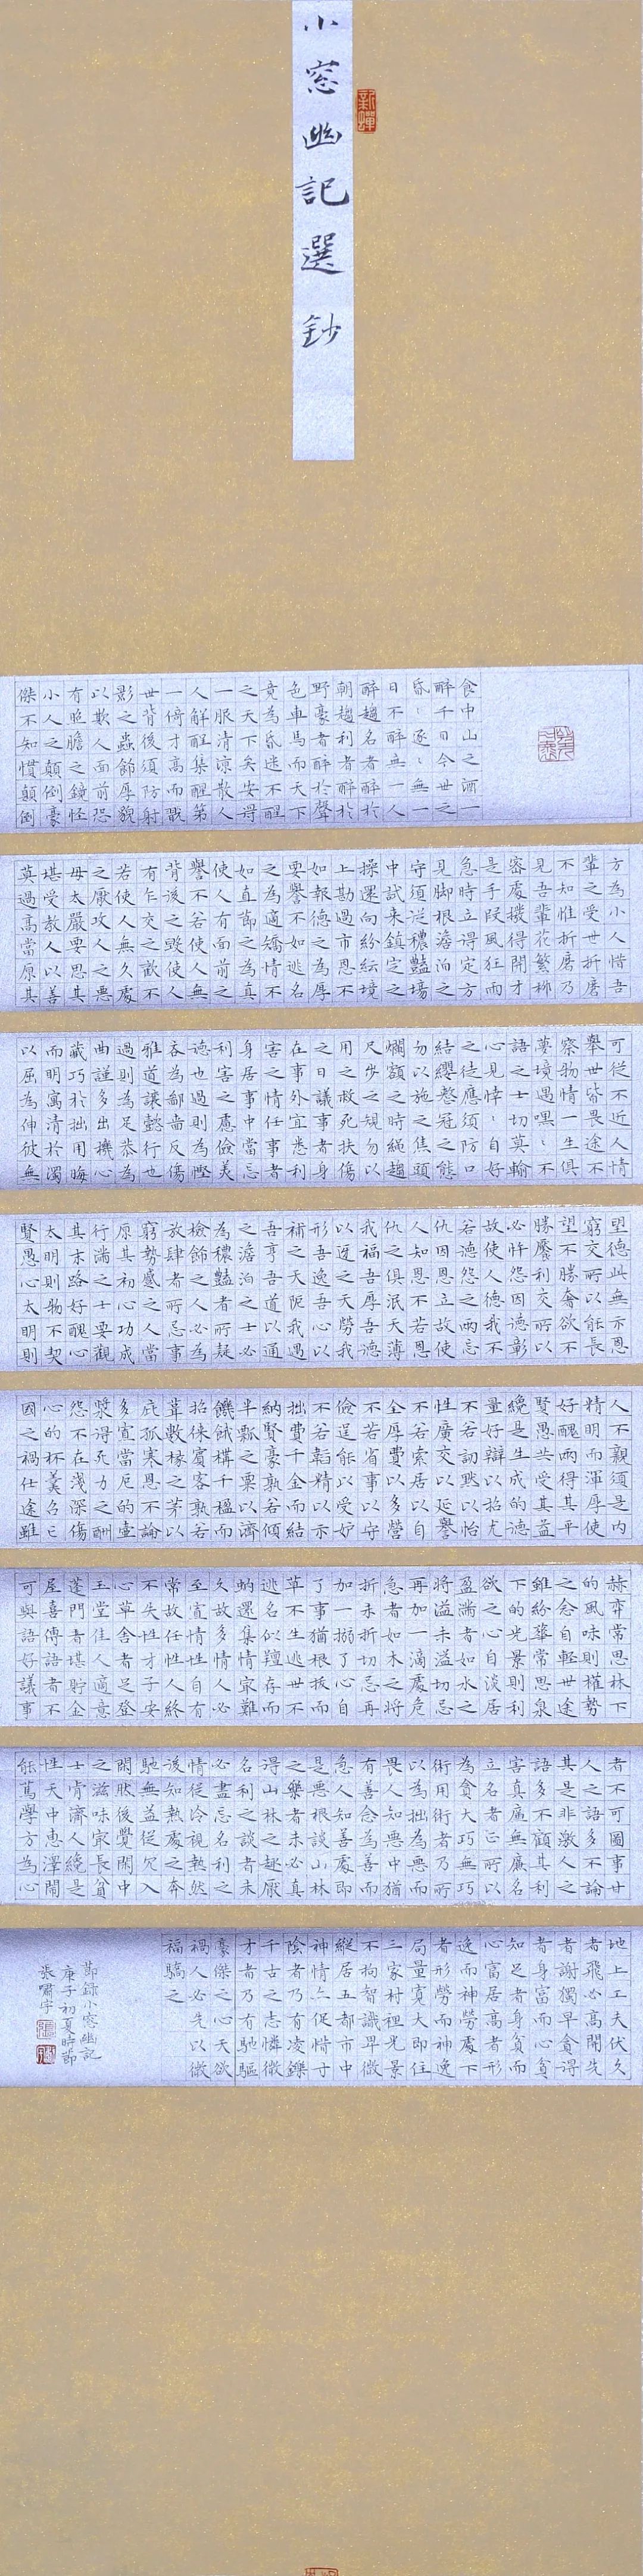 小窓幽記選鈔
新蟬
食中山之酒一
醉千日今世之
昏〻逐〻無一
日不醉無一人
醉趨名者醉於
朝趨利者醉於
野豪者醉於聲
色車馬而天下
竟為昏迷不醒
之天下矣安得
一服清涼散人
人解酲集醒第
一倚才高而翫
世背後須防射
影之蟲飾厚貌
以欺人面前恐
有照膽之鏡怪
小人之顛倒豪
傑不知慣顛倒
方為小人惜吾
輩之受世折磨
不知惟折磨乃
見吾輩花繁柳
密處撥得開才
是手段風狂雨
急時立得定方
見脚根澹泊之
守須從穠豔場
中試来鎮定之
操還向紛紜境
上勘過市恩不
如報德之為厚
要譽不如逃名
之為適矯情不
如直節之為真
使人有面前之
譽不若使人無
背後之毀使人
有乍交之歡不
若使人無久處
之厭攻人之惡
毋太嚴要思其
堪受教人以善
莫過高當原其
可從不近人情
舉世皆畏途不
察物情一生俱
夢境遇嘿〻不
語之士切莫輸
心見悻〻自好
之徒應須防口
結纓整冠之態
勿以施之焦頭
爛額之時繩趨
尺步之規勿以
用之救死扶傷
之日議事者身
在事外宜悉利
害之情任事者
身居事中當忘
利害之慮儉美
德也過則為慳
吝為鄙嗇反傷
雅道讓懿行也
過則為足恭為
曲謹多出機心
藏巧於拙用晦
而明寓清於濁
以屈為伸彼無
望德此無示恩
窮交所以能長
望不勝奢欲不
勝饜利交所以
必忤怨因德彰
故使人德我不
若德怨之兩忘
仇因恩立故使
人知恩不若恩
仇之俱泯天薄
我福吾厚吾德
以迓之天勞我
形吾逸吾心以
補之天阨我遇
吾亨吾道以通
之澹泊之士必
為穠豔者所疑
檢飾之人必為
放肆者所忌事
窮勢蹙之人當
原其初心功成
行滿之士要觀
其末路好醜心
太明則物不契
賢愚心太明則
人不親須是內
精明而渾厚使
好醜兩得其平
賢愚共受其益
纔是生成的德
量好辯以招尤
不若訒默以怡
性廣交以延譽
不若索居以自
全厚費以多營
不若省事以守
儉逞能以受妒
不若韜精以示
拙費千金而結
納賢豪孰若傾
半瓢之粟以濟
饑餓構千楹而
招徠賓客孰若
葺數椽之茅以
庇孤寒恩不論
多寡當厄的壺
漿得死力之酬
怨不在淺深傷
心的杯羹召亡
國之禍仕途雖
赫奕常思林下
的風味則權勢
之念自輕世途
雖紛華常思泉
下的光景則利
欲之心自淡居
盈滿者如水之
將溢未溢切忌
再加一滴處危
急者如木之將
折未折切忌再
加一搦了心自
了事猶根拔而
草不生逃世不
逃名似羶存而
蚋還集情家難
久故多情人必
至寡情性自有
常故任性人終
不失性才子安
心草舍者足登
玉堂佳人適意
蓬門者堪貯金
屋喜傳語者不
可與語好議事
者不可圖事廿
人之語多不論
其是非激人之
語多不顧其利
害真廉無廉名
立名者正所以
為貪大巧無巧
術用術者乃所
以為拙為惡而
畏人知惡中猶
有善念為善而
急人知善處即
是惡根談山林
之樂者未必真
得山林之趣厭
名利之談者未
必盡忘名利之
情從冷視熱然
後知熱處之奔
馳無益從冗入
閑然後覺閑中
之滋味家長貧
士肯濟人纔是
性天中惠澤鬧
能篤學方為心
地上工夫伏久
者飛必高開先
者謝獨早貪得
者身富而心貧
知足者身貧而
心富居高者形
逸而神勞處下
者形勞而神逸
局量寬大即住
三家村裡光景
不拘智識卑微
縱居五都市中
神情亦促惜寸
陰者乃有凌鑠
千古之志憐微
才者乃有馳驅
豪傑之心天欲
禍人必先以微
福驕之
節録小窓幽記
庚子初夏時節
張嘯宇